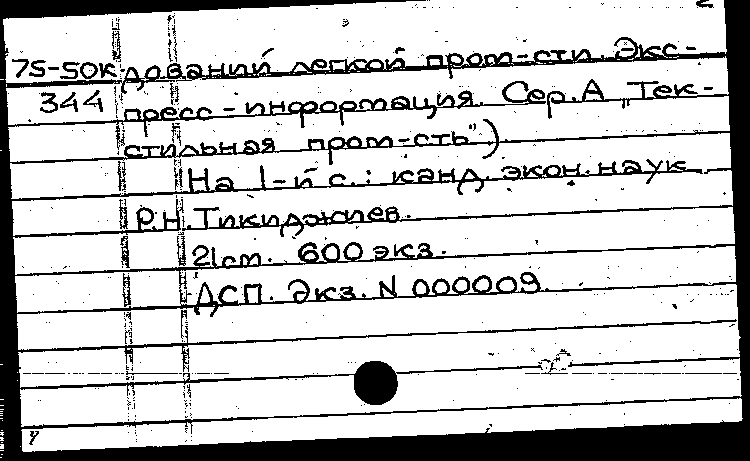 75-50К дований легкой пром-сти. Экс-
344 пресс-информация. Сер. А „Тек-
стильная пром-сть")
На 1-й с.: канд. экон. наук
Р.Н. Тикиджиев.
21см. 600 экз.
ДСП. Экз. N 000009.